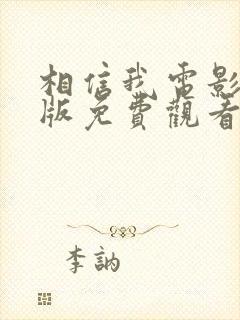 相信我電影
版免費觀看
李訥